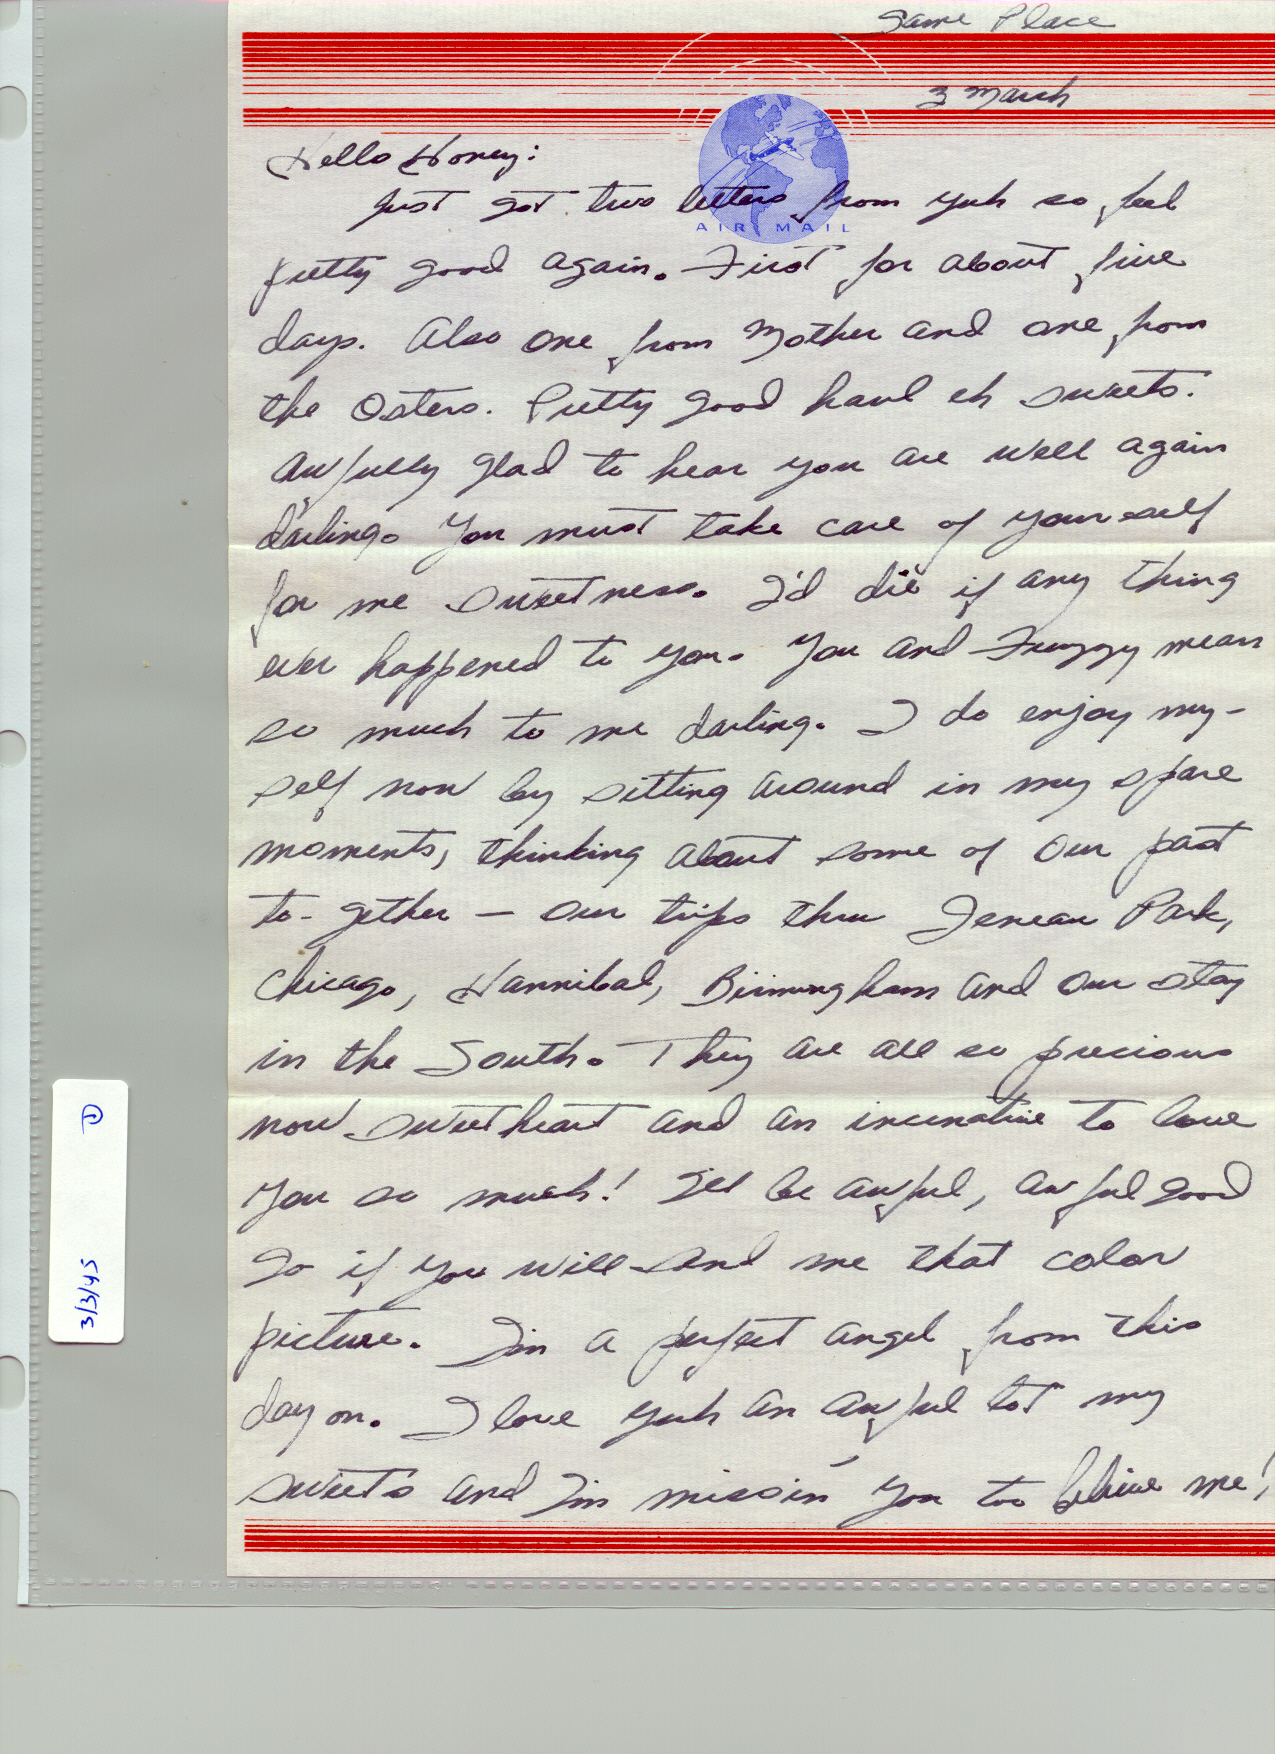 Same Place
3 March
Hello Honey:
AIR MAIL
Just got two letters from yuh so feel
pretty good again. First for about five
days. Also one from Mother and one from
the Osters. Pretty good haul eh sweets.
Awfully glad to hear you are well again
darling. You must take care of your self
for me sweetness. I'd die if any thing
ever happened to you. You and mean
so much to me darling. I do enjoy my-
self now by sitting around in my spare
moments, thinking about some of our past
to-gether — our trips thru Jeneau Park,
Chicago, Hannibal, Birmingham and our stay
in the South. They are all so precious
now sweetheart and an incenative to love
you so much! I'll be awful, awful good
so if you will send me that color
picture. I'm a perfect angel from this
day on. I love yuh an awful lot my
sweet's and I'm missin' you too believe me!
3/3/45 ①